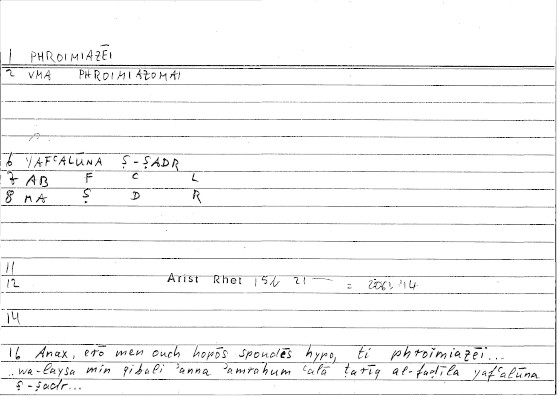 1 PHROIMIAZĒI
2 VMA PHROIMIAZOMAI
6 YAFʿALŪNA Ṣ-ṢADR
7 AB F C L
8 MA Ṣ D R
11
12 Arist Rhet 15b 21 =
14
16 Anax, erō men ouch hopōs spoudēs hypo, ti phroimiazei...
..wa-laysa min qibali ʾanna ʾamrahum ʿalā ṭarīq al-faḍīla yafʿalūna
ṣ-ṣadr...